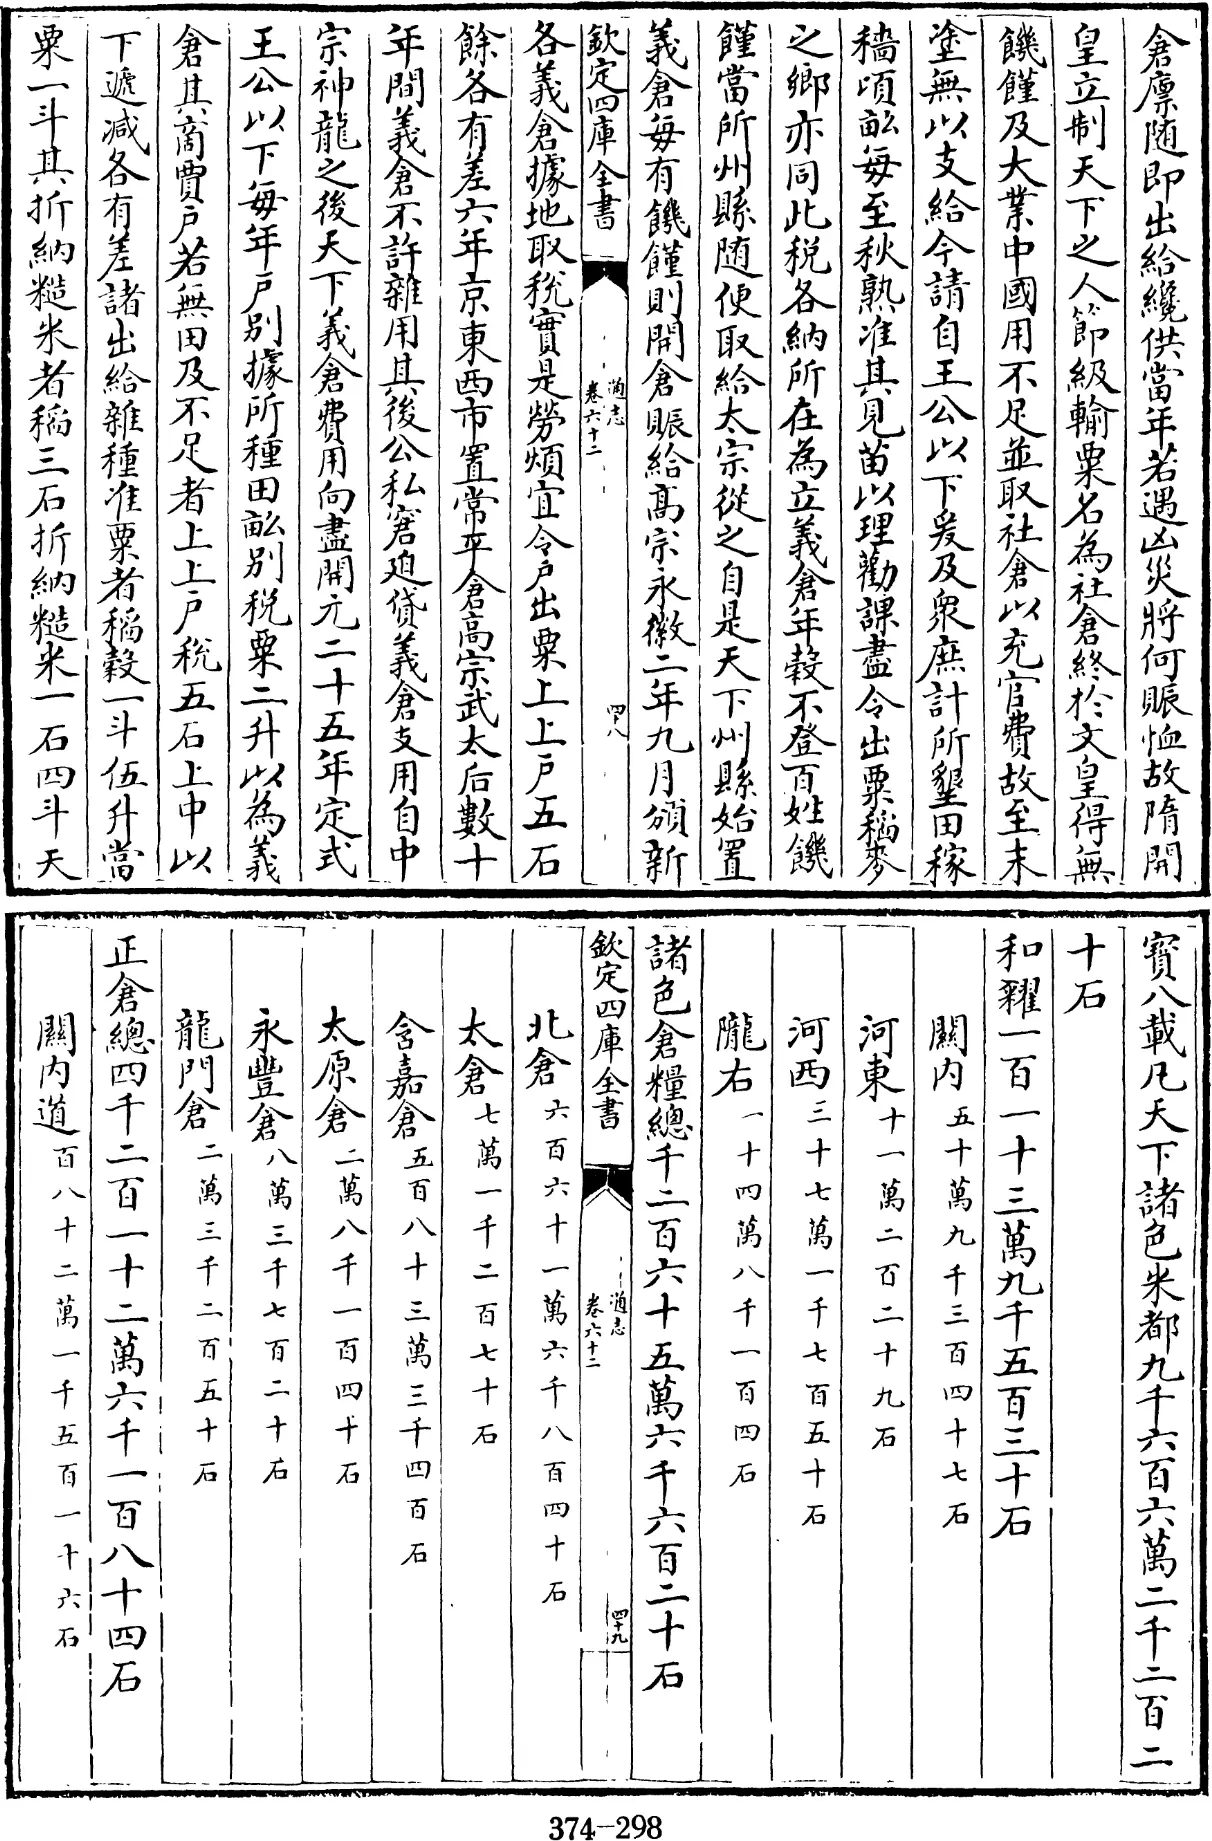 倉廪随即出給纔供當年若遇凶災將何賑恤故隋開
皇立制天下之人節級輸粟名為社倉終於文皇得無
饑饉及大業中國用不足並取社倉以充官費故至末
塗無以支給今請自王公以下爰及衆庶計所墾田稼
穡頃畝每至秋熟准其見苗以理勸課盡令出粟稻麥
之鄉亦同此税各納所在為立義倉年穀不登百姓饑
饉當所州縣随便取給太宗從之自是天下州縣始置
義倉每有饑饉則開倉賑給髙宗永徽二年九月頒新
欽定四庫全書
通志
卷六十二
四八
各義倉據地取税實是勞煩宜令户出粟上上戸五石
餘各有差六年京東西市置常平倉高宗武太后數十
年間義倉不許雜用其後公私窘廹貸義倉支用自中
宗神龍之後天下義倉費用向盡開元二十五年定式
王公以下每年戸别據所種田畝别税粟二升以為義
倉其商賈户若無田及不足者上上戸税五石上中以
下遞减各有差諸出給雜種准粟者稻榖一斗伍升當
粟一斗其折納糙米者稻三石折納糙米一石四斗天
寳八載凡天下諸色米都九千六百六萬二千二百二
十石
和糴一百一十三萬九千五百三十石
關内五十萬九千三百四十七石
河東十一萬二百二十九石
河西三十七萬一千七百五十石
隴右一十四萬八千一百四石
諸色倉糧總千二百六十五萬六千六百二十石
欽定四庫全書
通志
卷六十二
四十九
北倉六百六十一萬六千八百四十石
太倉七萬一千二百七十石
含嘉倉五百八十三萬三千四百石
太原倉二萬八千一百四十石
永豐倉八萬三千七百二十石
龍門倉二萬三千二百五十石
正倉總四千二百一十二萬六千一百八十四石
關内道百八十二萬一千五百一十六石
374-298